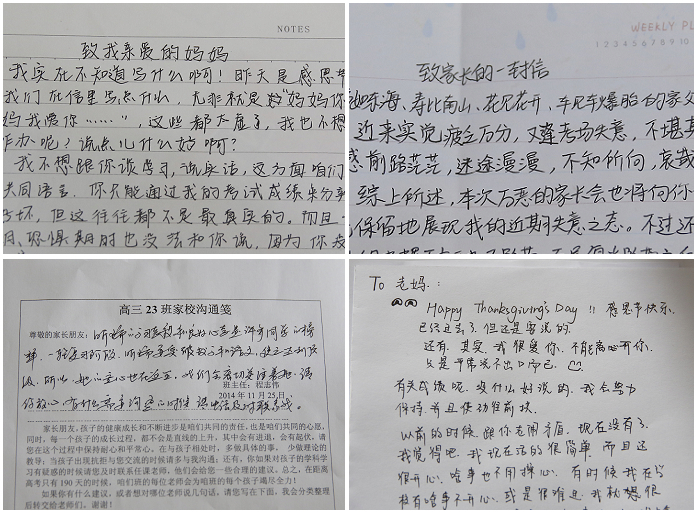 NOTES
致我亲爱的妈妈
我实在不知道写什么啊！昨天是感恩节
我们在信里写点什么，尢非就是些"妈妈你
妈我爱你……"，这些都太虚了，我也不想
咋办呢？说点儿什么好啊？
我不想跟你谈学习，说实话，这方面咱们
共同语言，你只能通过我的考试成绩来分
坏，但这往往都不是最真实的。而且
恐惧期时也没法和你说，因为你
WEEKLY PL
1 2 3 4 5 6 7 8 9 10
致家长的一封信
如东海、寿比南山、花见花开、车见车爆胎的家父
近来实觉疲乏万分，又逢考场失意，不堪其
感前路茫茫，迷途漫漫，不知所向，哀哉
综上所述，本次万恶的家长会也将向你
保留地展现我的近期失意之态。不过还
高三 23 班家校沟通笺
尊敬的家长朋友：
班主任：程志伟
2014 年 11 月 25 日
家长朋友，孩子的健康成长和不断进步是咱们共同的责任，也是咱们共同的心愿，
同时，每一个孩子的成长过程，都不会是直线的上升，其中会有进退，会有起伏，请
您在这个过程中保持耐心和平常心，在与孩子相处时，多做具体的事，少做理论的
教导；当孩子出现抗拒与您交流的时候请多与我沟通；还有，你如果对孩子的学科学
习有疑惑的时候请您及时联系任课老师，他们会给您一些合理的建议，总之，在距离
高考只有 190 天的时候，咱们班的每位老师会为咱班的每个孩子竭尽全力！
如果你有什么建议，或者想对哪位老师说几句话，请您写在下面，我会分类整理
后转交给老师们，谢谢！
To 老妈：
Happy Thanksgiving's Day !! 感恩节快乐.
已经过去了但还是要说的.
还有，其实，我很爱你，不能离开你.
只是平常说不出口而已.
有关成绩呢，没什么好说的，我会努力
保持并且使劲往前攻.
以前的时候，跟你老闹矛盾，现在没有了.
我觉得吧，我现在活的很简单，而且还
很开心，啥事也不用操心，有时候我在学
校有啥事不开心，或是很难过，我就想很